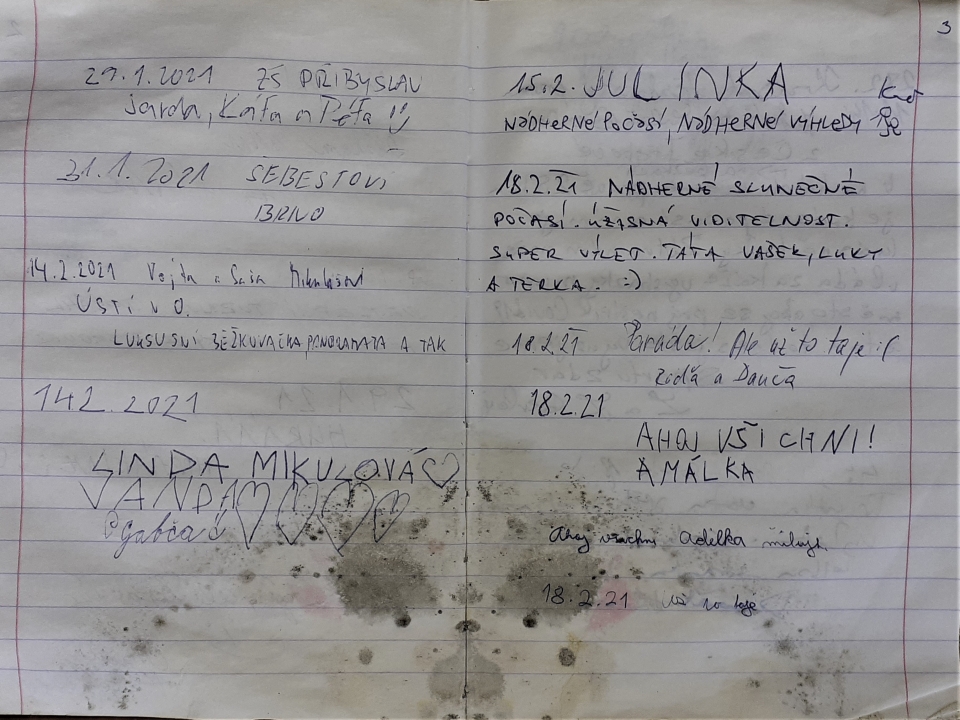 29.1.2021 ZŠ PŘIBYSLAV
Jarda, Káťa a Péťa
31.1.2021 ŠEBESTOVI
BRNO
14.2.2021 Vojta a Saša
ÚSTÍ n O.
LUKSUSNÍ BĚŽKOVAČKA, PANORAMATA A TAK
14 2. 2021
LINDA MIKULOVÁ
VANDA
Gabča
3
15.2. JULINKA
NÁDHERNÉ POČASÍ, NÁDHERNÉ VÝHLEDY
18.2.21 NÁDHERNÉ SLUNEČNÉ
POČASÍ. ÚŽASNÁ VIDITELNOST.
SUPER VÝLET. TÁTA VAŠEK, LUKY
A TERKA. :)
18.2.21 Paráda! Ale už to taje :(
a Danča
18.2.21
AHOJ VŠICHNI!
AMÁLKA
Ahoj všichni Adélka
18.2.21 to taje